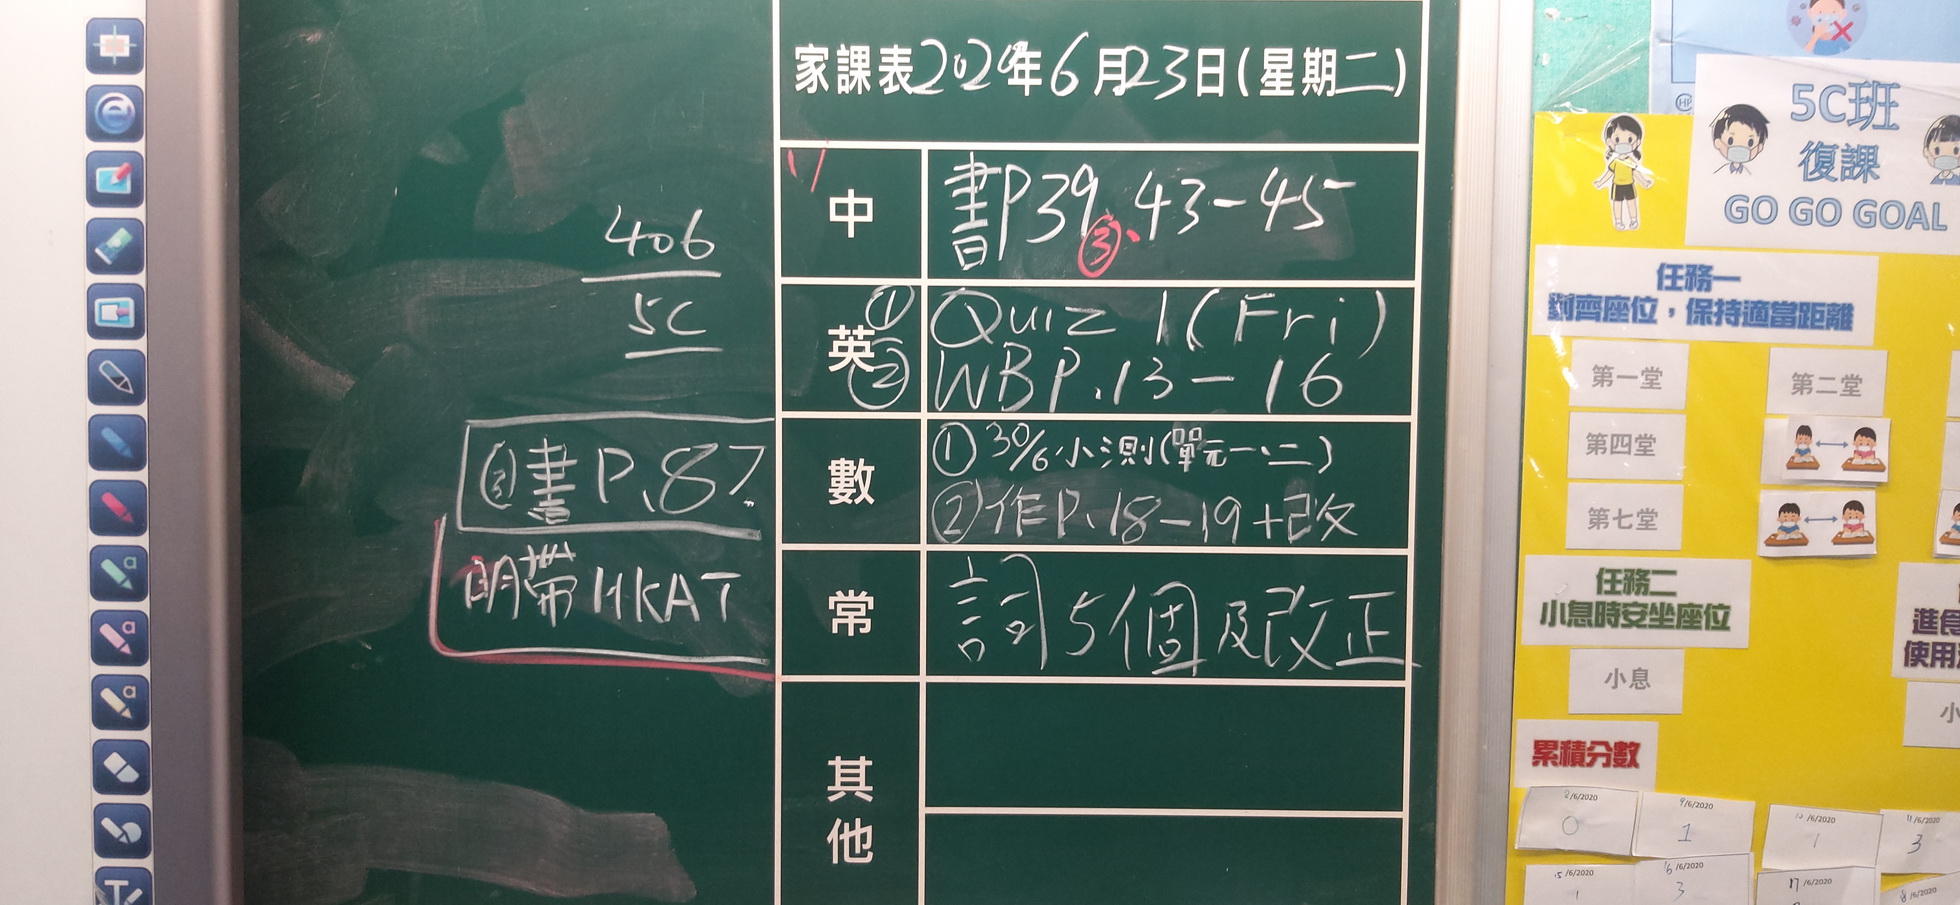 家課表2020年6月23日(星期二)
406
5C
中
書P39、43-45
③
英
① Quiz 1 (Fri)
② WB P.13-16
數
① 30/6小測(單元一、二)
② 作P.18-19+改
③書P.87
常
詞5個及改正
明帶HKAT
其他
5C班
復課
GO GO GOAL
任務一
對齊座位，保持適當距離
第一堂
第二堂
第四堂
第七堂
任務二
小息時安坐座位
小息
進食
使用
小
累積分數
2/6/2020
0
9/6/2020
1
10/6/2020
1
11/6/2020
3
15/6/2020
1
16/6/2020
3
17/6/2020
/6/2020